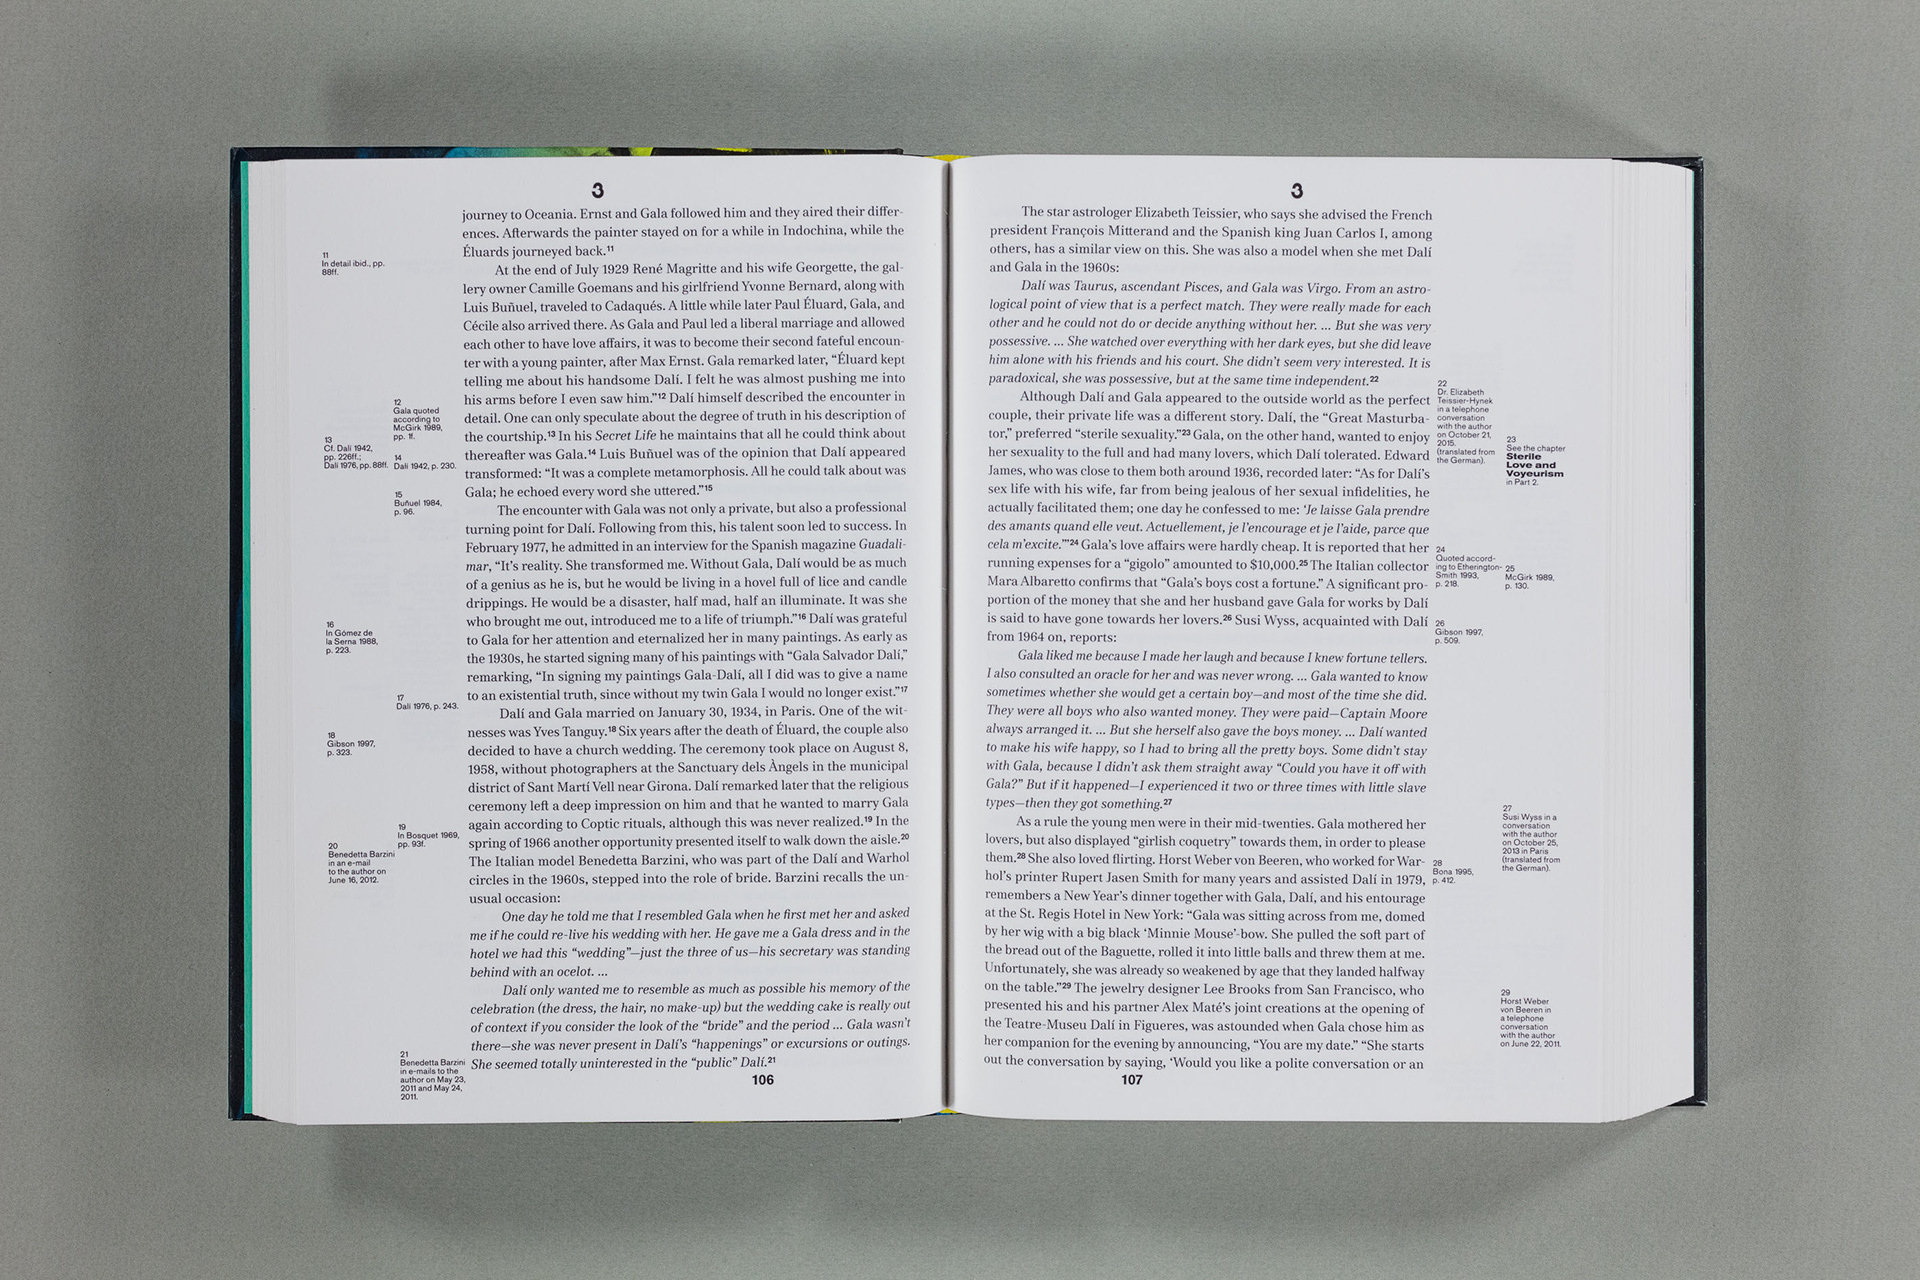 3
journey to Oceania. Ernst and Gala followed him and they aired their differ-
ences. Afterwards the painter stayed on for a while in Indochina, while the
Éluards journeyed back.11
At the end of July 1929 René Magritte and his wife Georgette, the gal-
lery owner Camille Goemans and his girlfriend Yvonne Bernard, along with
Luis Buñuel, traveled to Cadaqués. A little while later Paul Éluard, Gala, and
Cécile also arrived there. As Gala and Paul led a liberal marriage and allowed
each other to have love affairs, it was to become their second fateful encoun-
ter with a young painter, after Max Ernst. Gala remarked later, “Éluard kept
telling me about his handsome Dalí. I felt he was almost pushing me into
his arms before I even saw him.”12 Dalí himself described the encounter in
detail. One can only speculate about the degree of truth in his description of
the courtship.13 In his Secret Life he maintains that all he could think about
thereafter was Gala.14 Luis Buñuel was of the opinion that Dalí appeared
transformed: “It was a complete metamorphosis. All he could talk about was
Gala; he echoed every word she uttered.”15
The encounter with Gala was not only a private, but also a professional
turning point for Dalí. Following from this, his talent soon led to success. In
February 1977, he admitted in an interview for the Spanish magazine Guadali-
mar, “It’s reality. She transformed me. Without Gala, Dalí would be as much
of a genius as he is, but he would be living in a hovel full of lice and candle
drippings. He would be a disaster, half mad, half an illuminate. It was she
who brought me out, introduced me to a life of triumph.”16 Dalí was grateful
to Gala for her attention and eternalized her in many paintings. As early as
the 1930s, he started signing many of his paintings with “Gala Salvador Dalí,”
remarking, “In signing my paintings Gala-Dalí, all I did was to give a name
to an existential truth, since without my twin Gala I would no longer exist.”17
Dalí and Gala married on January 30, 1934, in Paris. One of the wit-
nesses was Yves Tanguy.18 Six years after the death of Éluard, the couple also
decided to have a church wedding. The ceremony took place on August 8,
1958, without photographers at the Sanctuary dels Àngels in the municipal
district of Sant Martí Vell near Girona. Dalí remarked later that the religious
ceremony left a deep impression on him and that he wanted to marry Gala
again according to Coptic rituals, although this was never realized.19 In the
spring of 1966 another opportunity presented itself to walk down the aisle.20
The Italian model Benedetta Barzini, who was part of the Dalí and Warhol
circles in the 1960s, stepped into the role of bride. Barzini recalls the un-
usual occasion:
One day he told me that I resembled Gala when he first met her and asked
me if he could re-live his wedding with her. He gave me a Gala dress and in the
hotel we had this “wedding”—just the three of us—his secretary was standing
behind with an ocelot. ...
Dalí only wanted me to resemble as much as possible his memory of the
celebration (the dress, the hair, no make-up) but the wedding cake is really out
of context if you consider the look of the “bride” and the period ... Gala wasn’t
there—she was never present in Dalí’s “happenings” or excursions or outings.
She seemed totally uninterested in the “public” Dalí.21
106
11
In detail ibid., pp.
88ff.
12
Gala quoted
according to
McGirk 1989,
pp. 1f.
13
Cf. Dalí 1942,
pp. 226ff.;
Dalí 1976, pp. 88ff.
14
Dalí 1942, p. 230.
15
Buñuel 1984,
p. 96.
16
In Gómez de
la Serna 1988,
p. 223.
17
Dalí 1976, p. 243.
18
Gibson 1997,
p. 323.
19
In Bosquet 1969,
pp. 93f.
20
Benedetta Barzini
in an e-mail
to the author on
June 16, 2012.
21
Benedetta Barzini
in e-mails to the
author on May 23,
2011 and May 24,
2011.
3
The star astrologer Elizabeth Teissier, who says she advised the French
president François Mitterand and the Spanish king Juan Carlos I, among
others, has a similar view on this. She was also a model when she met Dalí
and Gala in the 1960s:
Dalí was Taurus, ascendant Pisces, and Gala was Virgo. From an astro-
logical point of view that is a perfect match. They were really made for each
other and he could not do or decide anything without her. ... But she was very
possessive. ... She watched over everything with her dark eyes, but she did leave
him alone with his friends and his court. She didn’t seem very interested. It is
paradoxical, she was possessive, but at the same time independent.22
Although Dalí and Gala appeared to the outside world as the perfect
couple, their private life was a different story. Dalí, the “Great Masturba-
tor,” preferred “sterile sexuality.”23 Gala, on the other hand, wanted to enjoy
her sexuality to the full and had many lovers, which Dalí tolerated. Edward
James, who was close to them both around 1936, recorded later: “As for Dalí’s
sex life with his wife, far from being jealous of her sexual infidelities, he
actually facilitated them; one day he confessed to me: ‘Je laisse Gala prendre
des amants quand elle veut. Actuellement, je l’encourage et je l’aide, parce que
cela m’excite.’”24 Gala’s love affairs were hardly cheap. It is reported that her
running expenses for a “gigolo” amounted to $10,000.25 The Italian collector
Mara Albaretto confirms that “Gala’s boys cost a fortune.” A significant pro-
portion of the money that she and her husband gave Gala for works by Dalí
is said to have gone towards her lovers.26 Susi Wyss, acquainted with Dalí
from 1964 on, reports:
Gala liked me because I made her laugh and because I knew fortune tellers.
I also consulted an oracle for her and was never wrong. ... Gala wanted to know
sometimes whether she would get a certain boy—and most of the time she did.
They were all boys who also wanted money. They were paid—Captain Moore
always arranged it. ... But she herself also gave the boys money. ... Dalí wanted
to make his wife happy, so I had to bring all the pretty boys. Some didn’t stay
with Gala, because I didn’t ask them straight away “Could you have it off with
Gala?” But if it happened—I experienced it two or three times with little slave
types—then they got something.27
As a rule the young men were in their mid-twenties. Gala mothered her
lovers, but also displayed “girlish coquetry” towards them, in order to please
them.28 She also loved flirting. Horst Weber von Beeren, who worked for War-
hol’s printer Rupert Jasen Smith for many years and assisted Dalí in 1979,
remembers a New Year’s dinner together with Gala, Dalí, and his entourage
at the St. Regis Hotel in New York: “Gala was sitting across from me, domed
by her wig with a big black ‘Minnie Mouse’-bow. She pulled the soft part of
the bread out of the Baguette, rolled it into little balls and threw them at me.
Unfortunately, she was already so weakened by age that they landed halfway
on the table.”29 The jewelry designer Lee Brooks from San Francisco, who
presented his and his partner Alex Maté’s joint creations at the opening of
the Teatre-Museu Dalí in Figueres, was astounded when Gala chose him as
her companion for the evening by announcing, “You are my date.” “She starts
out the conversation by saying, ‘Would you like a polite conversation or an
107
22
Dr. Elizabeth
Teissier-Hynek
in a telephone
conversation
with the author
on October 21,
2015.
(translated from
the German).
23
See the chapter
Sterile
Love and
Voyeurism
in Part 2.
24
Quoted accord-
ing to Etherington-
Smith 1993,
p. 218.
25
McGirk 1989,
p. 130.
26
Gibson 1997,
p. 509.
27
Susi Wyss in a
conversation
with the author
on October 25,
2013 in Paris
(translated from
the German).
28
Bona 1995,
p. 412.
29
Horst Weber
von Beeren in
a telephone
conversation
with the author
on June 22, 2011.